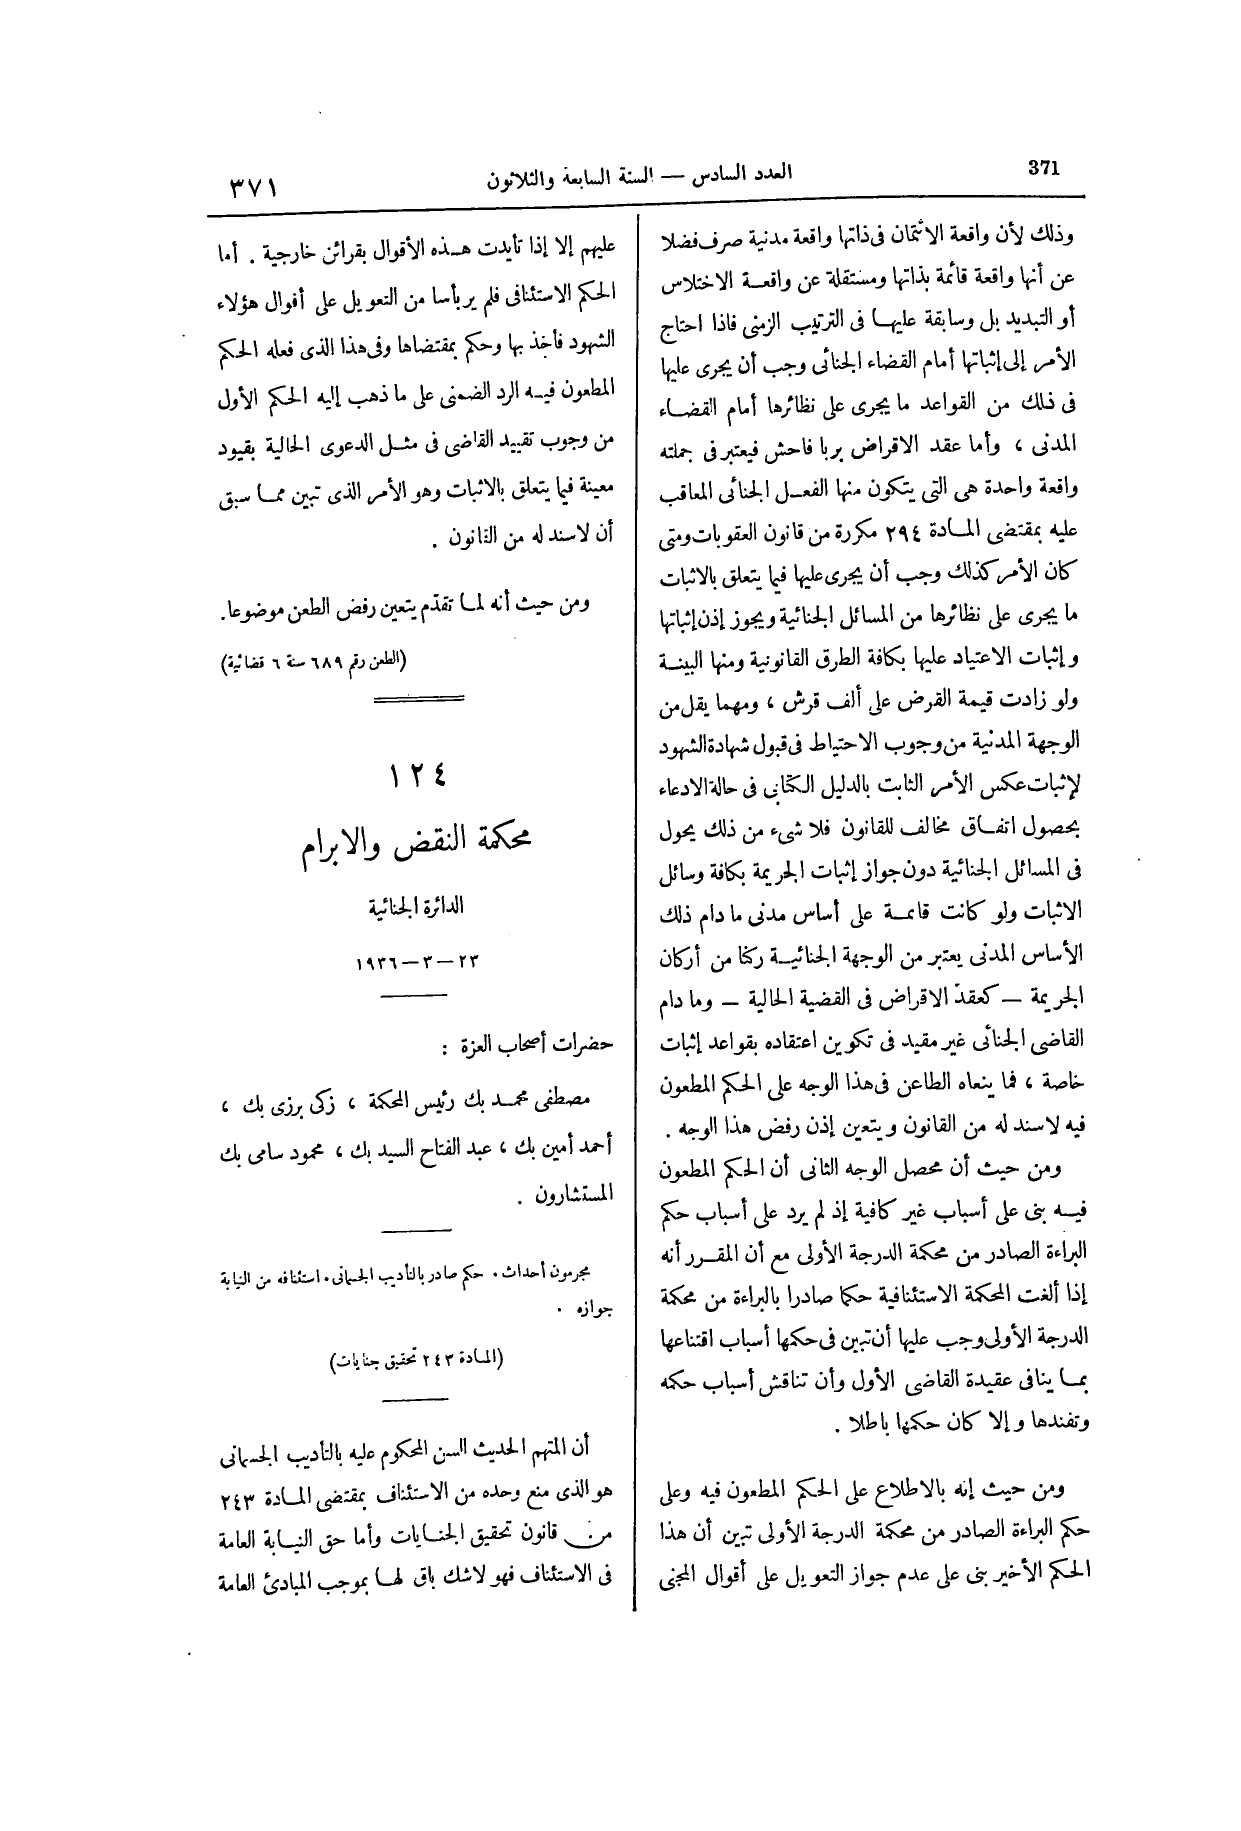 371
العدد السادس — السنة السابعة والثلاثون
٣٧١
وذلك لأن واقعة الائتمان فى ذاتها واقعة مدنية صرف فضلا
عن أنها واقعة قائمة بذاتها ومستقلة عن واقعة الاختلاس
أو التبديد بل وسابقة عليها فى الترتيب الزمنى فاذا احتاج
الأمر إلى إثباتها أمام القضاء الجنائى وجب أن يجرى عليها
فى ذلك من القواعد ما يجرى على نظائرها أمام القضاء
المدنى ، وأما عقد الاقراض بربا فاحش فيعتبر فى جملته
واقعة واحدة هى التى يتكون منها الفعل الجنائى المعاقب
عليه بمقتضى المادة ٢٩٤ مكررة من قانون العقوبات ومتى
كان الأمر كذلك وجب أن يجرى عليها فيما يتعلق بالاثبات
ما يجرى على نظائرها من المسائل الجنائية ويجوز إذن إثباتها
وإثبات الاعتياد عليها بكافة الطرق القانونية ومنها البينة
ولو زادت قيمة القرض على ألف قرش ، ومهما يقل من
الوجهة المدنية من وجوب الاحتياط فى قبول شهادة الشهود
لإثبات عكس الأمر الثابت بالدليل الكتابى فى حالة الادعاء
بحصول اتفاق مخالف للقانون فلا شىء من ذلك يحول
فى المسائل الجنائية دون جواز إثبات الجريمة بكافة وسائل
الاثبات ولو كانت قائمة على أساس مدنى ما دام ذلك
الأساس المدنى يعتبر من الوجهة الجنائية ركنا من أركان
الجريمة — كعقد الاقراض فى القضية الحالية — وما دام
القاضى الجنائى غير مقيد فى تكوين اعتقاده بقواعد إثبات
خاصة ، فما ينعاه الطاعن فى هذا الوجه على الحكم المطعون
فيه لا سند له من القانون ويتعين إذن رفض هذا الوجه .
ومن حيث أن محصل الوجه الثانى أن الحكم المطعون
فيه بنى على أسباب غير كافية إذ لم يرد على أسباب حكم
البراءة الصادر من محكمة الدرجة الأولى مع أن المقرر أنه
إذا ألغت المحكمة الاستئنافية حكما صادرا بالبراءة من محكمة
الدرجة الأولى وجب عليها أن تبين فى حكمها أسباب اقتناعها
بما ينافى عقيدة القاضى الأول وأن تناقش أسباب حكمه
وتفندها وإلا كان حكمها باطلا .
ومن حيث إنه بالاطلاع على الحكم المطعون فيه وعلى
حكم البراءة الصادر من محكمة الدرجة الأولى تبين أن هذا
الحكم الأخير بنى على عدم جواز التعويل على أقوال المجنى
عليهم إلا إذا تأيدت هذه الأقوال بقرائن خارجية . أما
الحكم الاستئنافى فلم ير بأسا من التعويل على أقوال هؤلاء
الشهود فأخذ بها وحكم بمقتضاها وفى هذا الذى فعله الحكم
المطعون فيه الرد الضمنى على ما ذهب إليه الحكم الأول
من وجوب تقييد القاضى فى مثل الدعوى الحالية بقيود
معينة فيما يتعلق بالاثبات وهو الأمر الذى تبين مما سبق
أن لا سند له من القانون .
ومن حيث أنه لما تقدّم يتعين رفض الطعن موضوعا.
(الطعن رقم ٦٨٩ سنة ٦ قضائية)
١٢٤
محكمة النقض والابرام
الدائرة الجنائية
٢٣ — ٣ — ١٩٣٦
حضرات أصحاب العزة :
مصطفى محمد بك رئيس المحكمة ، زكى برزى بك ،
أحمد أمين بك ، عبد الفتاح السيد بك ، محمود سامى بك
المستشارون .
مجرمون أحداث . حكم صادر بالتأديب الجسمانى . استئنافه من النيابة
جوازه .
(المادة ٢٤٣ تحقيق جنايات)
أن المتهم الحديث السن المحكوم عليه بالتأديب الجسمانى
هو الذى منع وحده من الاستئناف بمقتضى المادة ٢٤٣
من قانون تحقيق الجنايات وأما حق النيابة العامة
فى الاستئناف فهو لاشك باق لها بموجب المبادئ العامة